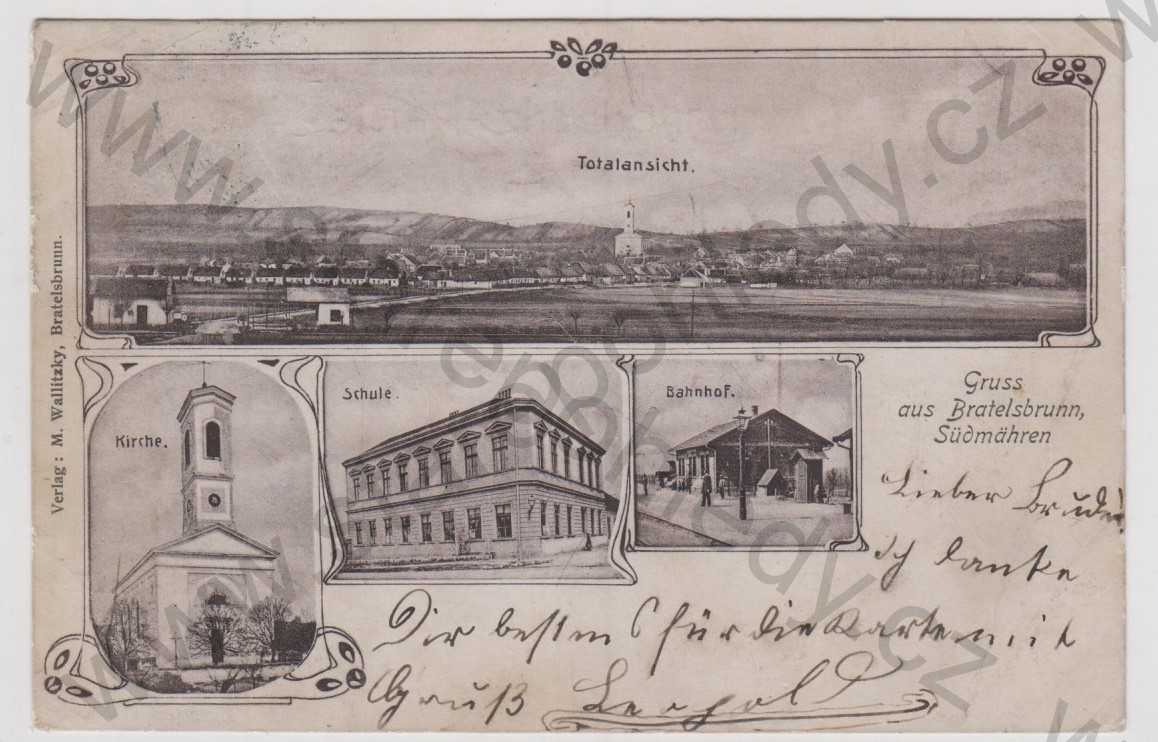 Totalansicht.
Verlag: M. Wallitzky, Bratelsbrunn.
Kirche.
Schule.
Bahnhof.
Gruss
aus Bratelsbrunn,
Südmähren
Lieber Bruder!
Ich danke
Dir bestens für die Karte mit
Gruß
www.antikpohlednice.cz